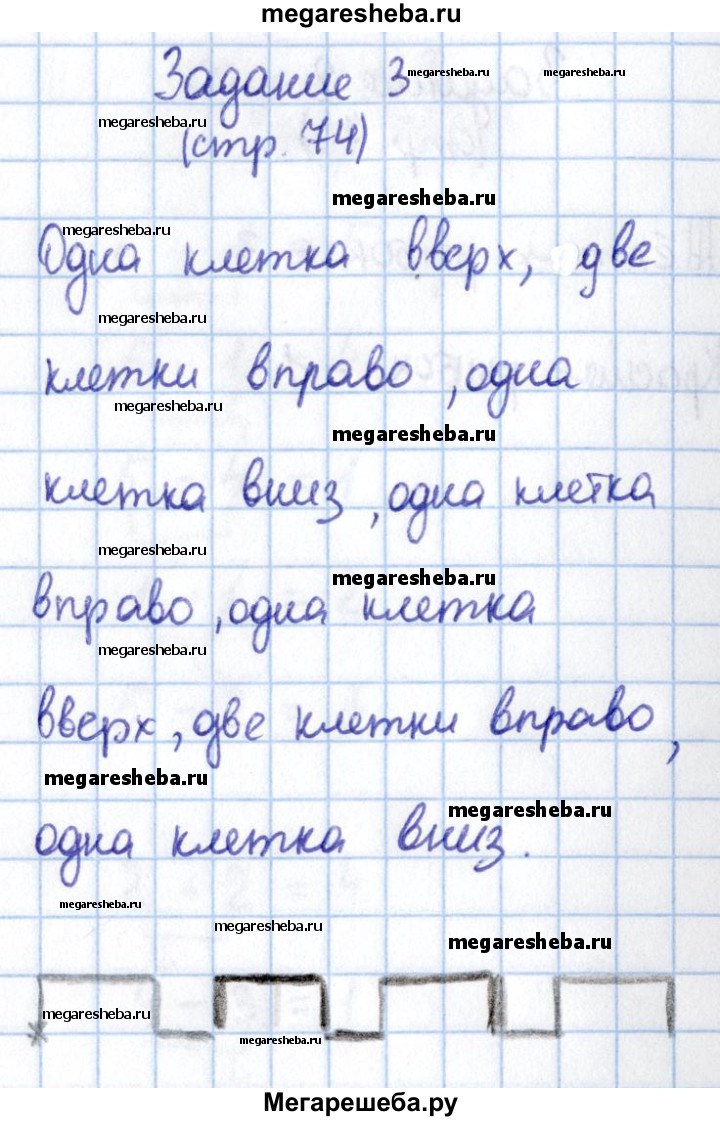 megaresheba.ru
Задание 3 megaresheba.ru megaresheba.ru
megaresheba.ru
(стр. 74)
megaresheba.ru
megaresheba.ru
Одна клетка вверх, две
megaresheba.ru
клетки вправо, одна
megaresheba.ru
megaresheba.ru
клетка вниз, одна клетка
megaresheba.ru
megaresheba.ru
вправо, одна клетка
megaresheba.ru
вверх, две клетки вправо,
megaresheba.ru
megaresheba.ru
одна клетка вниз.
megaresheba.ru
megaresheba.ru
megaresheba.ru
megaresheba.ru
megaresheba.ru
Мегарешеба.ру